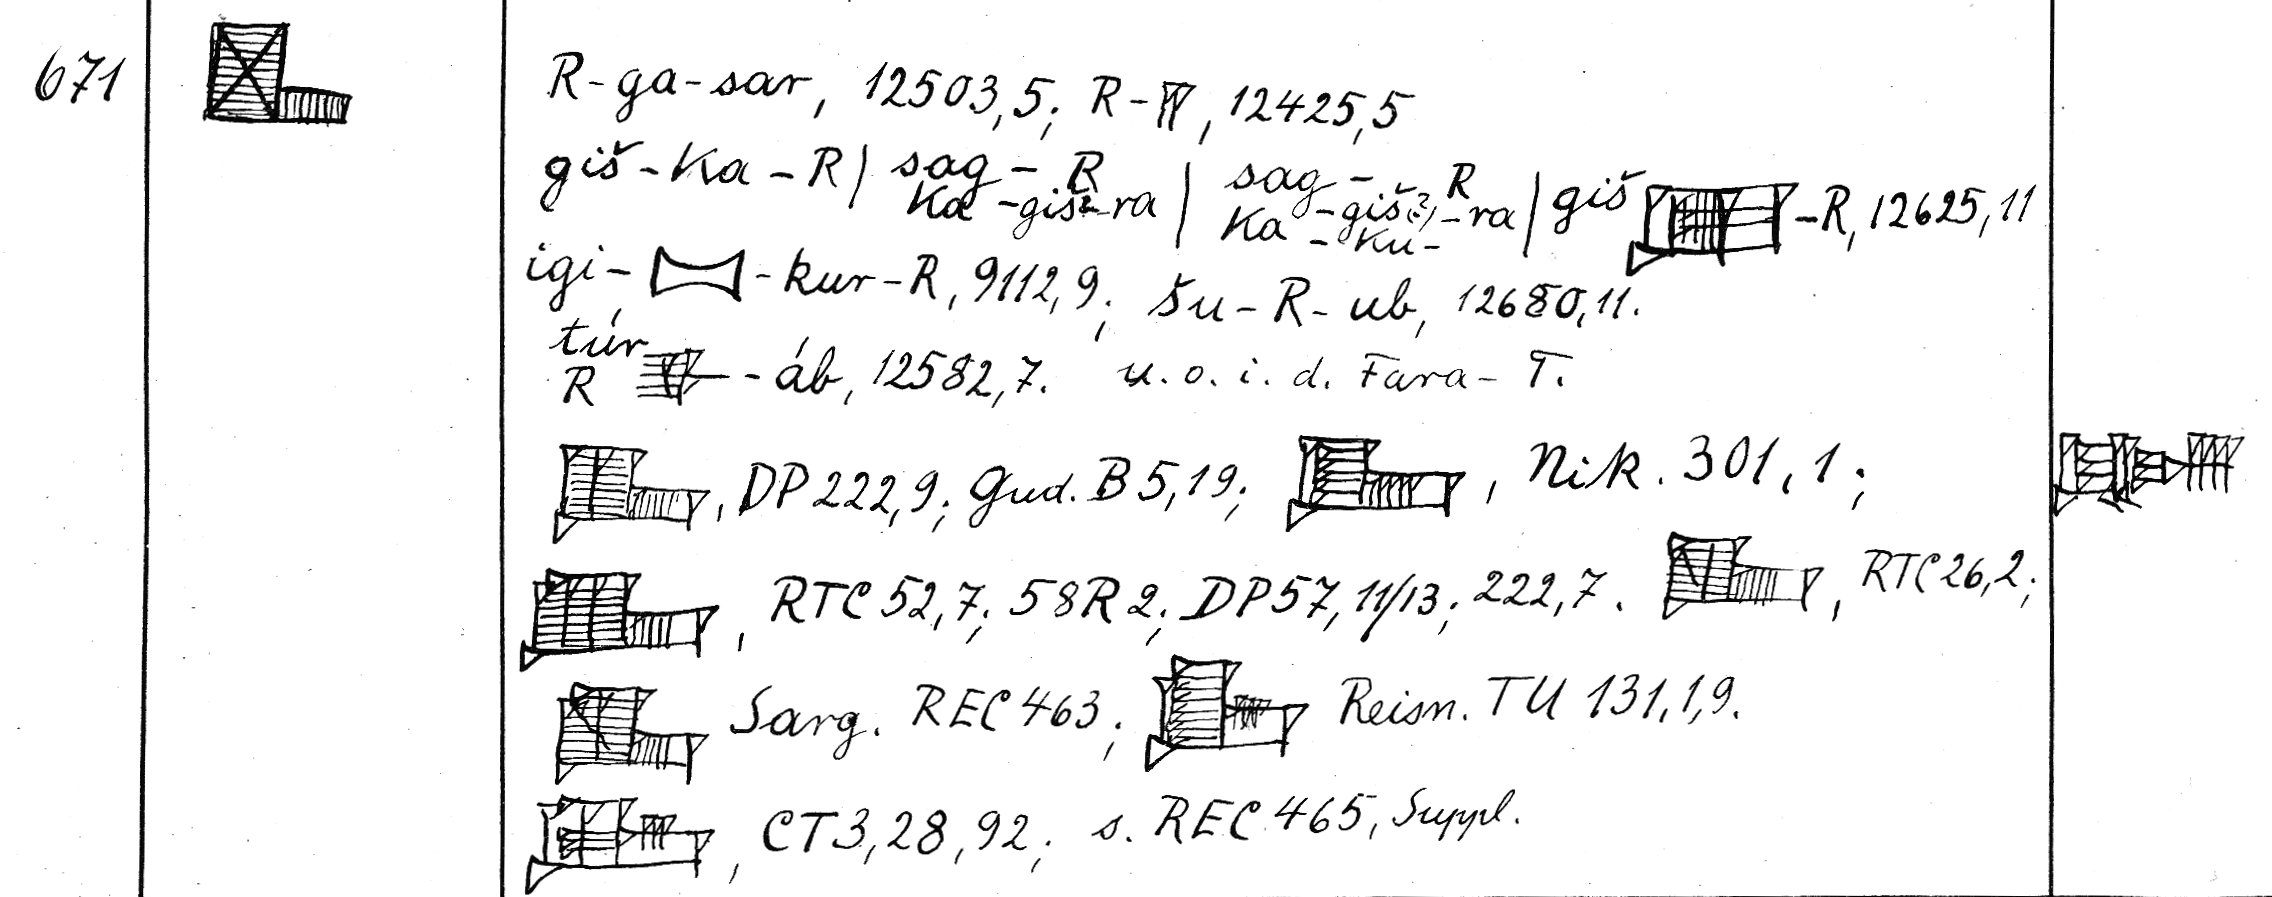 671
R-ga-sar, 12503,5; R-, 12425,5
giš-Ka-R | sag-R Ka-giš-ra | sag-R Ka-giš-ra -Ku- | giš -R, 12625,11
igi- -kur-R, 9112,9; šu-R-ub, 12680,11.
túr R -áb, 12582,7. u. o. i. d. Fara-T.
, DP 222,9; Gud. B 5,19; , Nik. 301,1;
, RTC 52,7; 58 R 2; DP 57, 11/13; 222,7. , RTC 26,2;
Sarg. REC 463; Reisn. TU 131,1,9.
, CT 3,28,92; s. REC 465, Suppl.